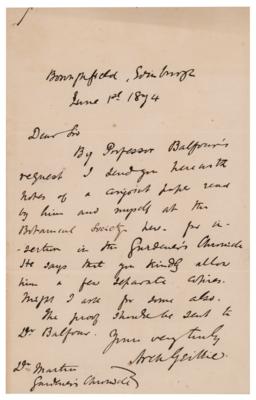 Boroughfield, Edinburgh
June 1st 1874
Dear Sir
By Professor Balfour's
request I send you herewith
notes of a conjoint paper read
by him and myself at the
Botanical Society here. for in-
sertion in the Gardener's Chronicle
He says that you kindly allow
him a few separate copies.
Might I ask for some also.
The proof should be sent to
Dr Balfour. Yours very truly
Arch Geikie.
Dr Masters
Gardener's Chronicle